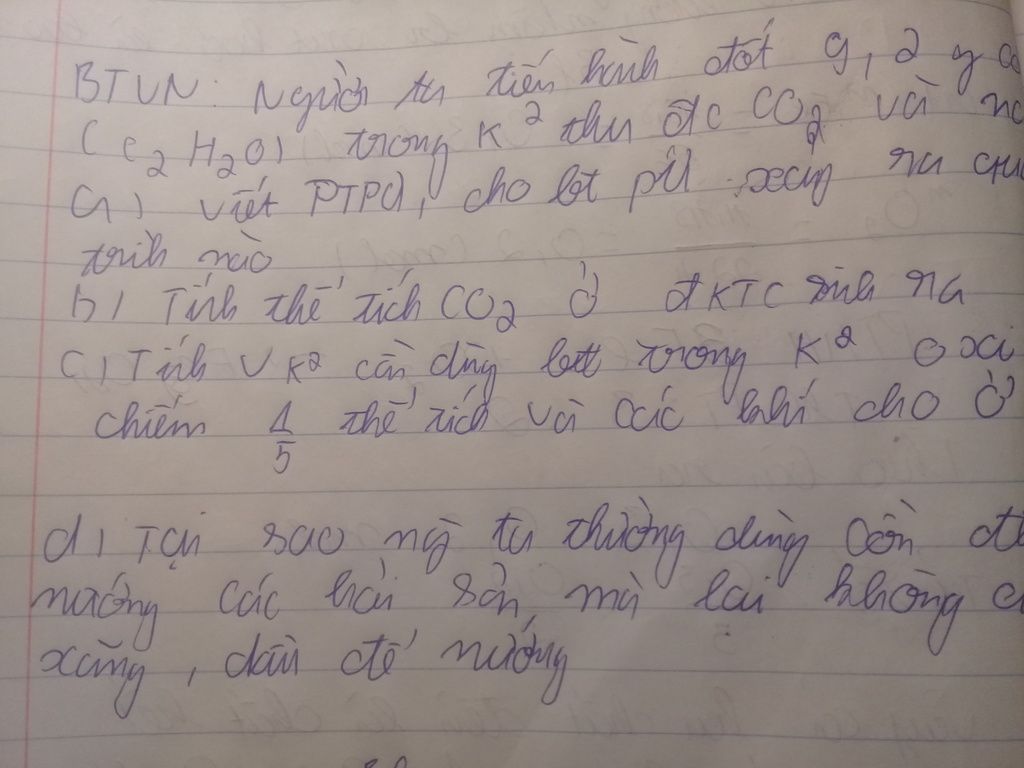 BTVN: Người ta tiến hành đốt 9,2 g cồ
(C2H2O) trong K² thu đc CO2 và nư
a) viết PTPƯ, cho bt pư xảy ra quá
trình nào
b) Tính thế tích CO2 ở đKTC sinh ra
c) Tính VK² cần dùng bt trong K² oxi
chiếm 1/5 thế tích và các khí cho ở
d) Tại sao ng ta thường dùng Cồn để
nướng các hải sản, mà lại không
xăng, dầu đế nướng